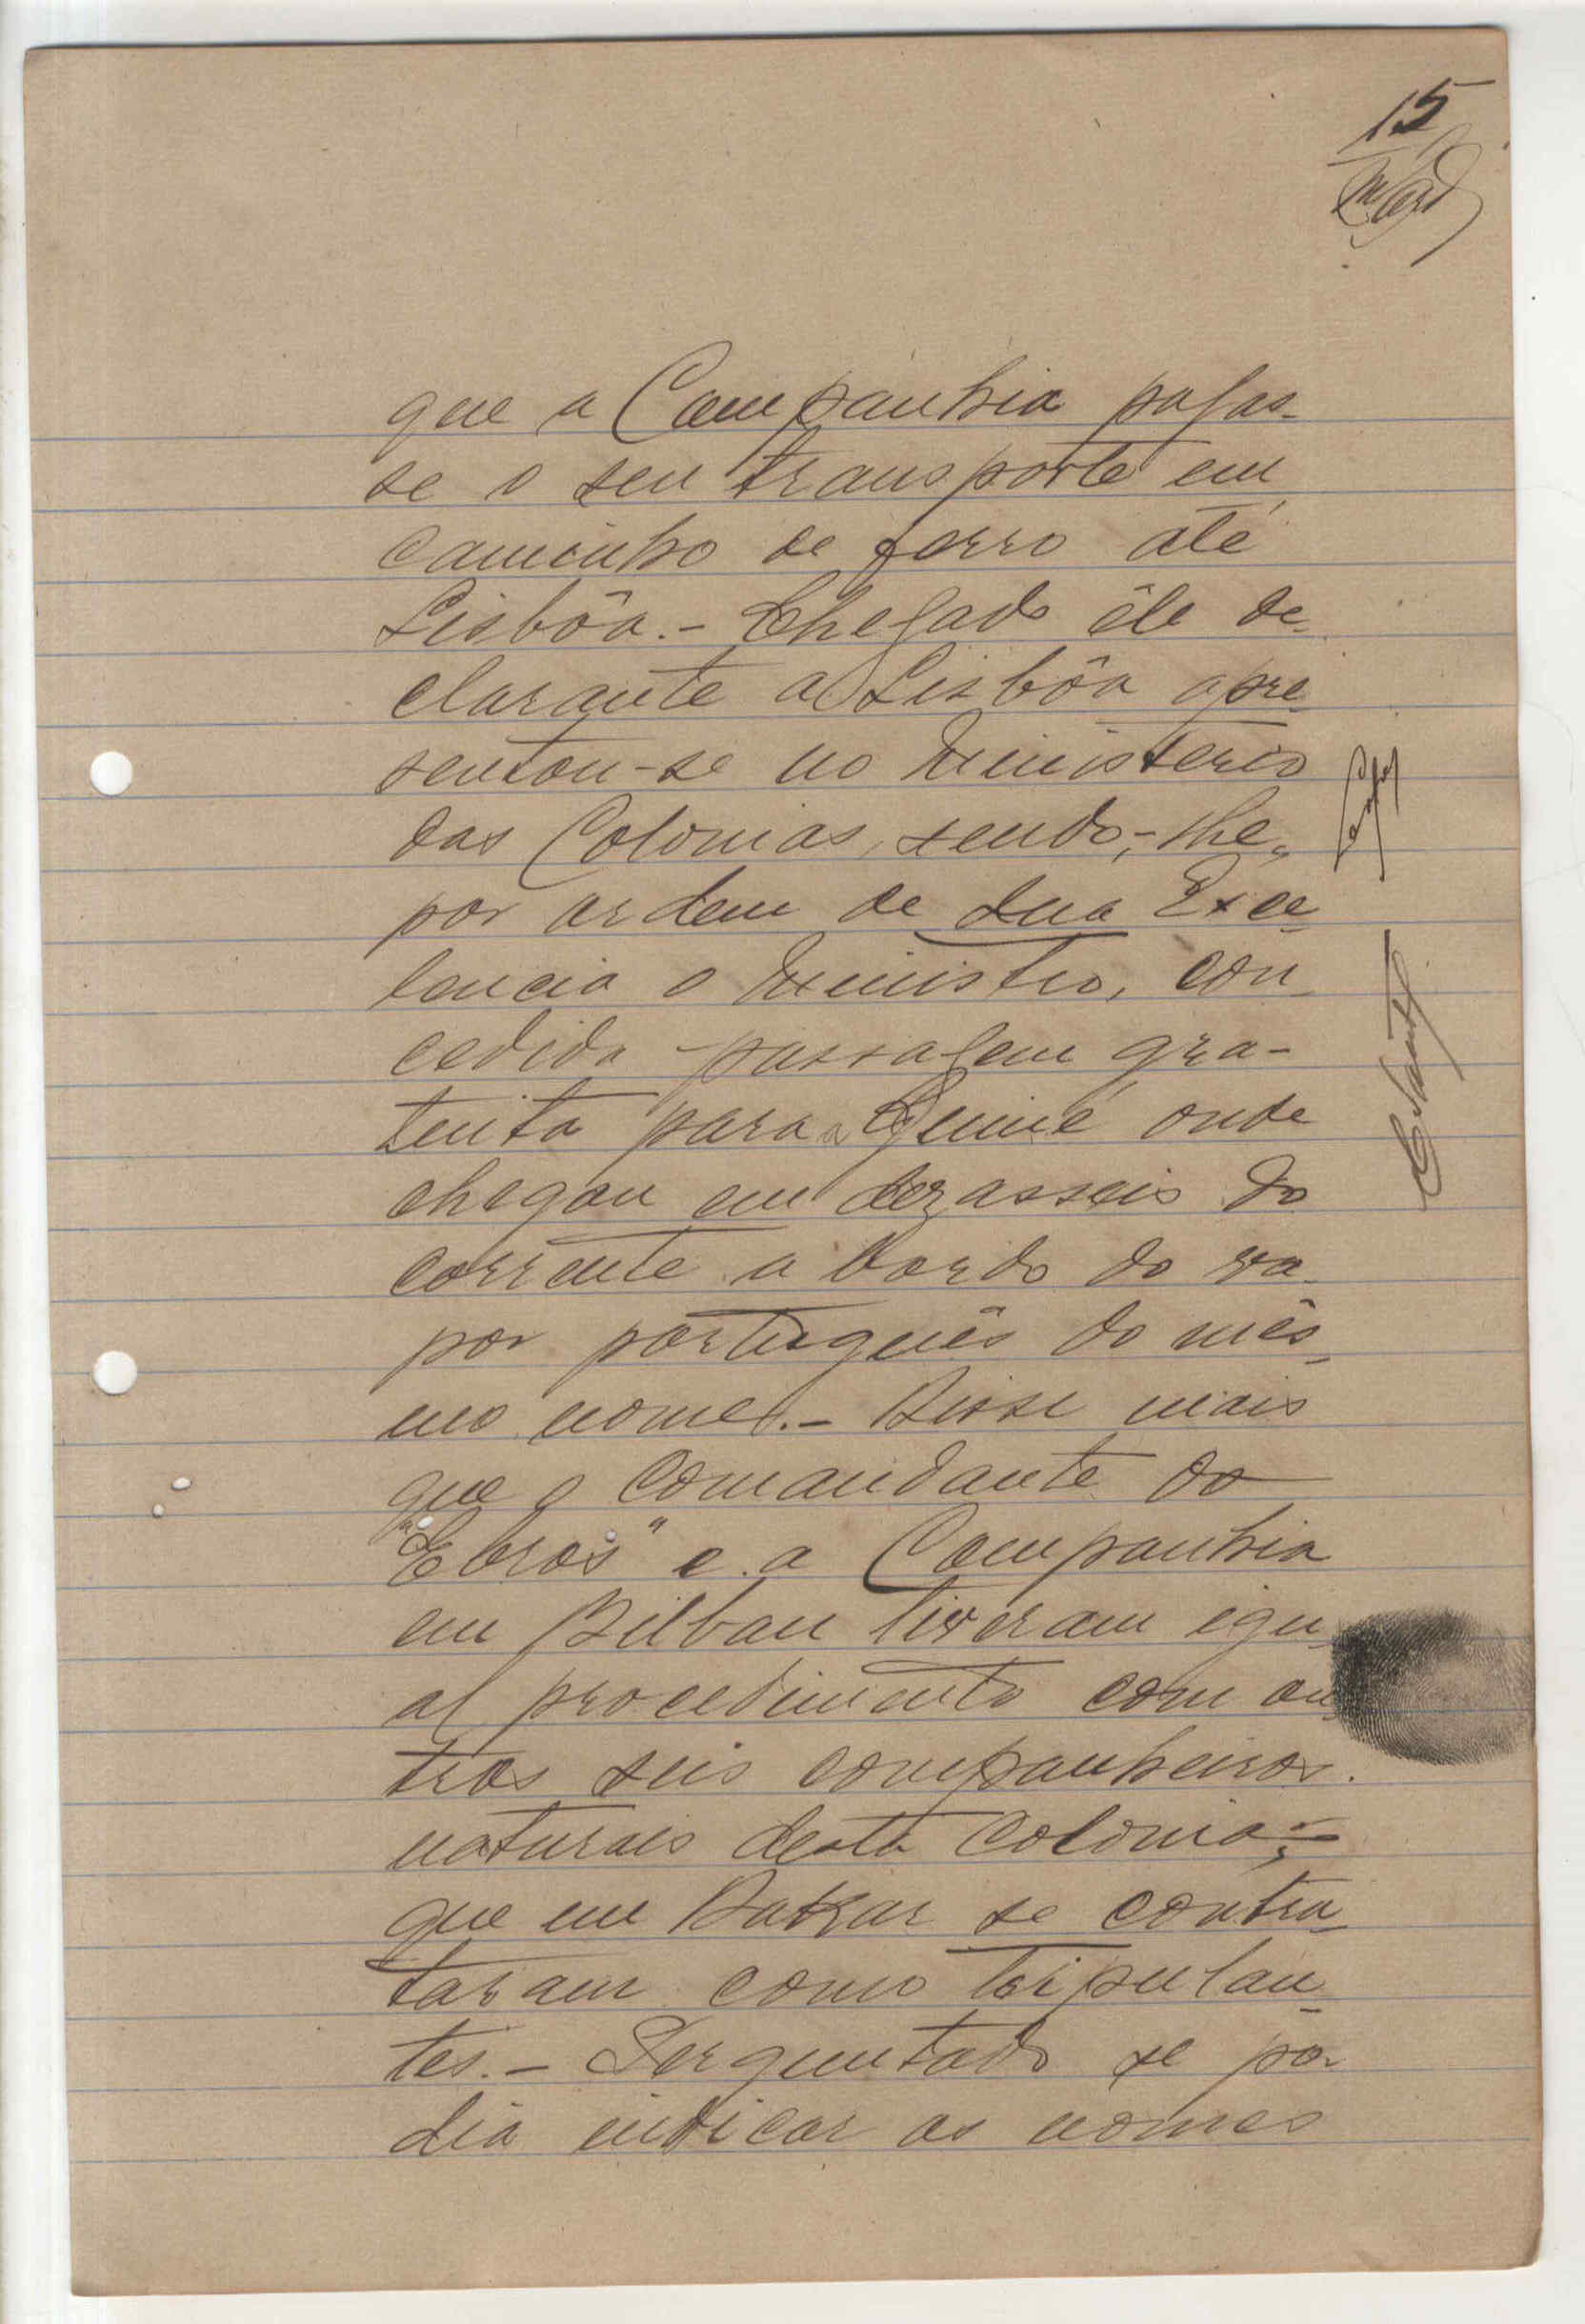 15
que a Companhia pagas-
se o seu transporte em
caminho de ferro até
Lisbôa.- Chegado êle de-
clarante a Lisbôa apre-
sentou-se no Ministerio
das Colonias, sendo,-lhe,
por ordem de Sua Exce-
lencia o Ministro, con-
cedida passagem gra-
tuita para a Guiné onde
chegou em dezasseis do
corrente a bordo do va-
por português do mês-
mo nome.- Disse mais
que o comandante do
"Ebros" e a Companhia
em Bilbau tiveram egu-
al procedimento com ou-
tros seis companheiros
naturais desta colonia-,
que em Dakar se contra-
taram como tripulan-
tes.- Perguntado se po-
dia indicar os nomes